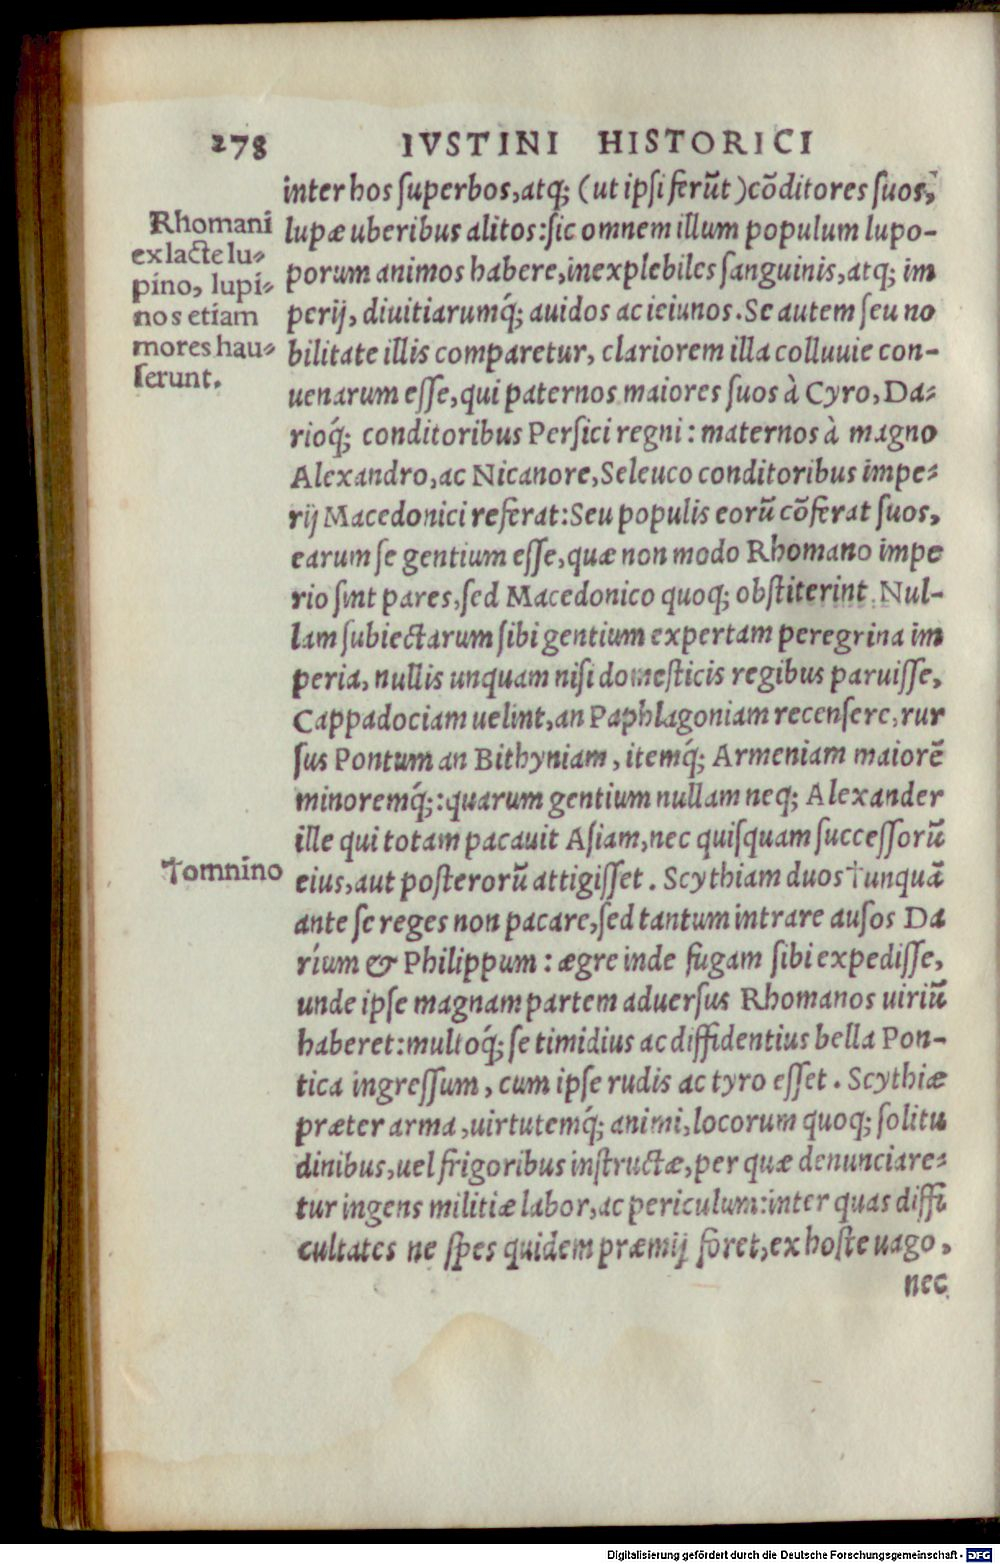 278 IVSTINI HISTORICI
inter hos superbos, atq; (ut ipsi ferũt) cõditores suos,
lupæ uberibus alitos: sic omnem illum populum lupo-
porum animos habere, inexplebiles sanguinis, atq; im
perij, diuitiarumq́; auidos ac ieiunos. Se autem seu no
bilitate illis comparetur, clariorem illa colluuie con-
uenarum esse, qui paternos maiores suos à Cyro, Da-
rioq́; conditoribus Persici regni: maternos à magno
Alexandro, ac Nicanore, Seleuco conditoribus impe-
rij Macedonici referat: Seu populis eorũ cõferat suos,
earum se gentium esse, quæ non modo Rhomano impe
rio sint pares, sed Macedonico quoq; obstiterint. Nul-
lam subiectarum sibi gentium expertam peregrina im
peria, nullis unquam nisi domesticis regibus paruisse,
Cappadociam uelint, an Paphlagoniam recensere, rur
sus Pontum an Bithyniam, itemq́; Armeniam maiorẽ
minoremq́;: quarum gentium nullam neq; Alexander
ille qui totam pacauit Asiam, nec quisquam successorũ
eius, aut posterorũ attigisset. Scythiam duos † unquã
ante se reges non pacare, sed tantum intrare ausos Da
ríum & Philippum: ægre inde fugam sibi expedisse,
unde ipse magnam partem aduersus Rhomanos uiriũ
haberet: multoq́; se timidius ac diffidentius bella Pon-
tica ingressum, cum ipse rudis ac tyro esset. Scythiæ
præter arma, uirtutemq́; animi, locorum quoq; solitu
dinibus, uel frigoribus instructæ, per quæ denunciare-
tur ingens militiæ labor, ac periculum: inter quas diffi
cultates ne spes quidem præmij foret, ex hoste uago,
nec
Rhomani
ex lacte lu-
pino, lupi-
nos etiam
mores hau-
serunt.
†omnino
Digitalisierung gefördert durch die Deutsche Forschungsgemeinschaft - DFG